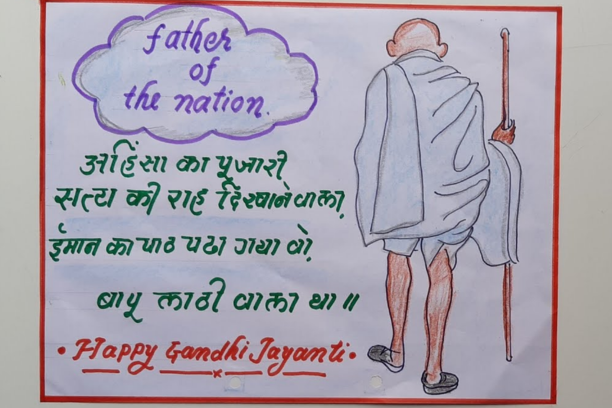 father
of
the nation.
अहिंसा का पूजारी
सत्य की राह दिखाने वाला,
ईमान का पाठ पढा गया वो,
बापू लाठी वाला था॥
• Happy Gandhi Jayanti •